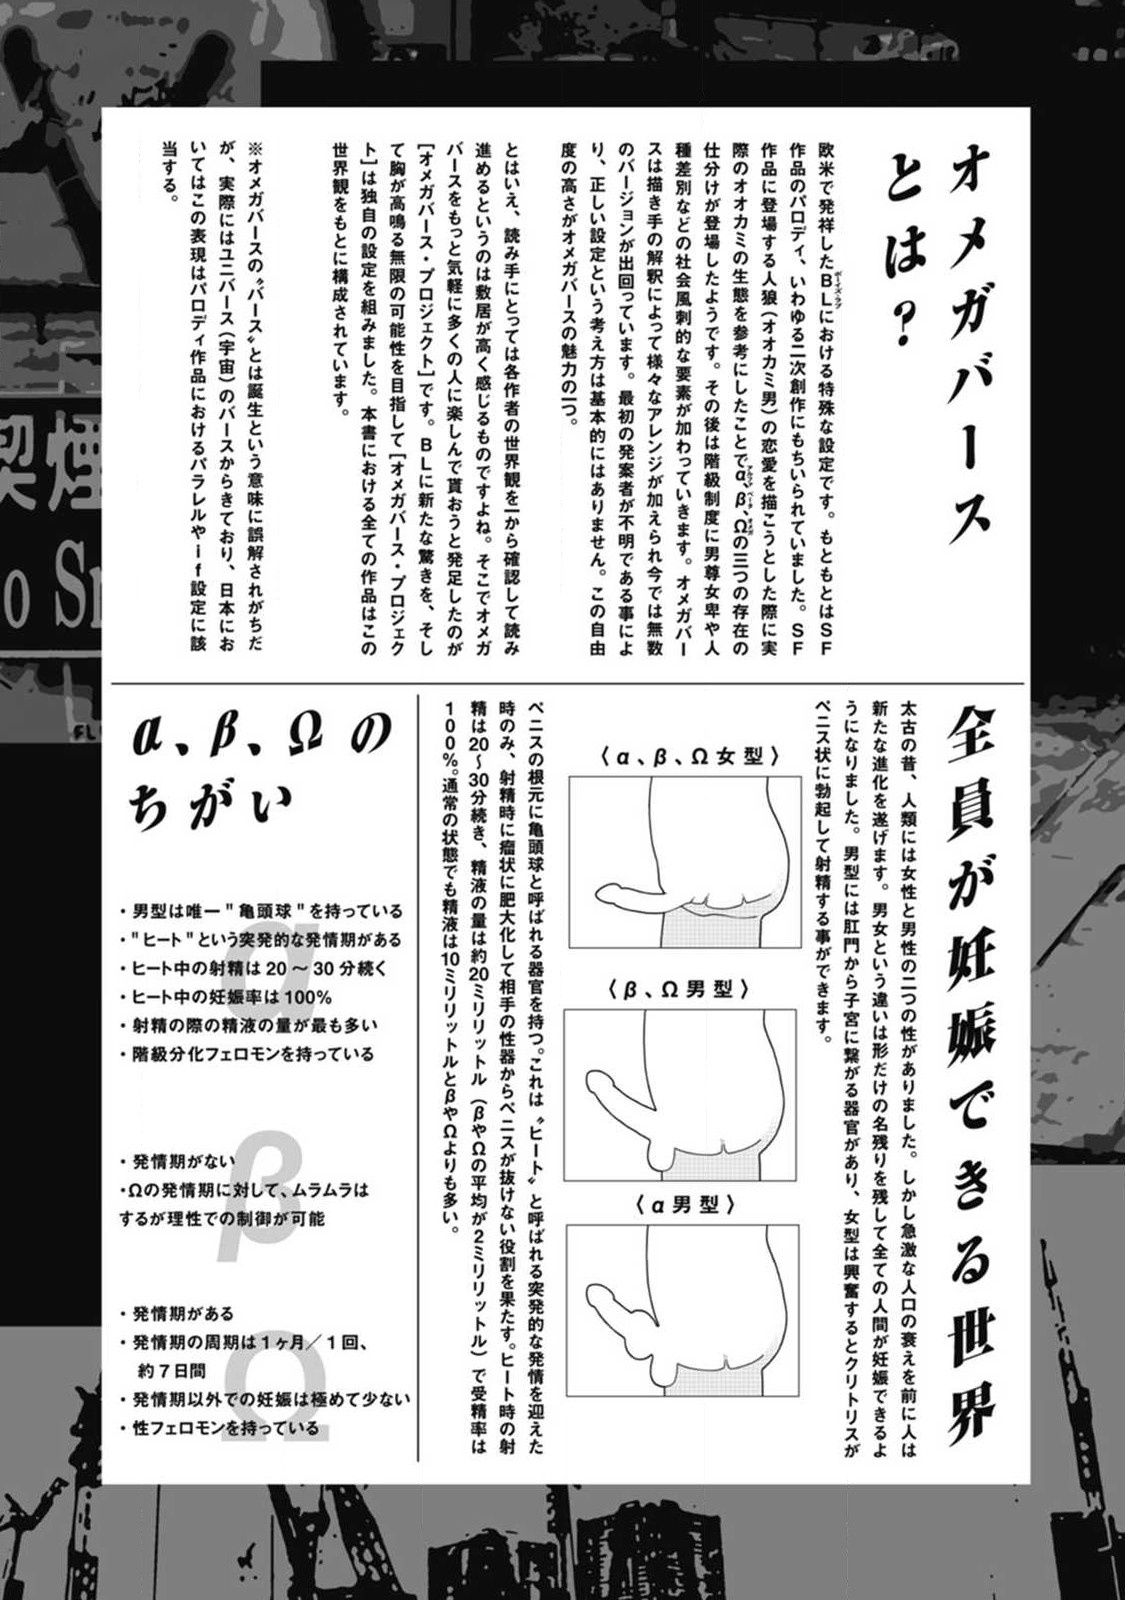 オメガバース
とは？
欧米で発祥したBLにおける特殊な設定です。もともとはSF
ボーイズ・ラブ
作品のパロディ、いわゆる二次創作にもちいられていました。SF
作品に登場する人狼（オオカミ男）の恋愛を描こうとした際に実
際のオオカミの生態を参考にしたことでα、β、Ωの三つの存在の
アルファ ベータ オメガ
仕分けが登場したようです。その後は階級制度に男尊女卑や人
種差別などの社会風刺的な要素が加わっていきます。オメガバー
スは描き手の解釈によって様々なアレンジが加えられ今では無数
のバージョンが出回っています。最初の発案者が不明である事によ
り、正しい設定という考え方は基本的にはありません。この自由
度の高さがオメガバースの魅力の一つ。
とはいえ、読み手にとっては各作者の世界観を一から確認して読み
進めるというのは敷居が高く感じるものですよね。そこでオメガ
バースをもっと気軽に多くの人に楽しんで貰おうと発足したのが
［オメガバース・プロジェクト］です。BLに新たな驚きを、そし
て胸が高鳴る無限の可能性を目指して［オメガバース・プロジェク
ト］は独自の設定を組みました。本書における全ての作品はこの
世界観をもとに構成されています。
※オメガバースの〝バース〟とは誕生という意味に誤解されがちだ
が、実際にはユニバース（宇宙）のバースからきており、日本にお
いてはこの表現はパロディ作品におけるパラレルやif設定に該
当する。
全員が妊娠できる世界
太古の昔、人類には女性と男性の二つの性がありました。しかし急激な人口の衰えを前に人は
新たな進化を遂げます。男女という違いは形だけの名残りを残して全ての人間が妊娠できるよ
うになりました。男型には肛門から子宮に繋がる器官があり、女型は興奮するとクリトリスが
ペニス状に勃起して射精する事ができます。
〈α、β、Ω女型〉
〈β、Ω男型〉
〈α男型〉
ペニスの根元に亀頭球と呼ばれる器官を持つ。これは〝ヒート〟と呼ばれる突発的な発情を迎えた
時のみ、射精時に瘤状に肥大化して相手の性器からペニスが抜けない役割を果たす。ヒート時の射
精は20〜30分続き、精液の量は約20ミリリットル（βやΩの平均が2ミリリットル）で受精率は
100％。通常の状態でも精液は10ミリリットルとβやΩよりも多い。
α、β、Ωの
ちがい
α
・男型は唯一"亀頭球"を持っている
・"ヒート"という突発的な発情期がある
・ヒート中の射精は20〜30分続く
・ヒート中の妊娠率は100%
・射精の際の精液の量が最も多い
・階級分化フェロモンを持っている
β
・発情期がない
・Ωの発情期に対して、ムラムラは
するが理性での制御が可能
Ω
・発情期がある
・発情期の周期は1ヶ月／1回、
約7日間
・発情期以外での妊娠は極めて少ない
・性フェロモンを持っている
喫煙
o Sm
FL